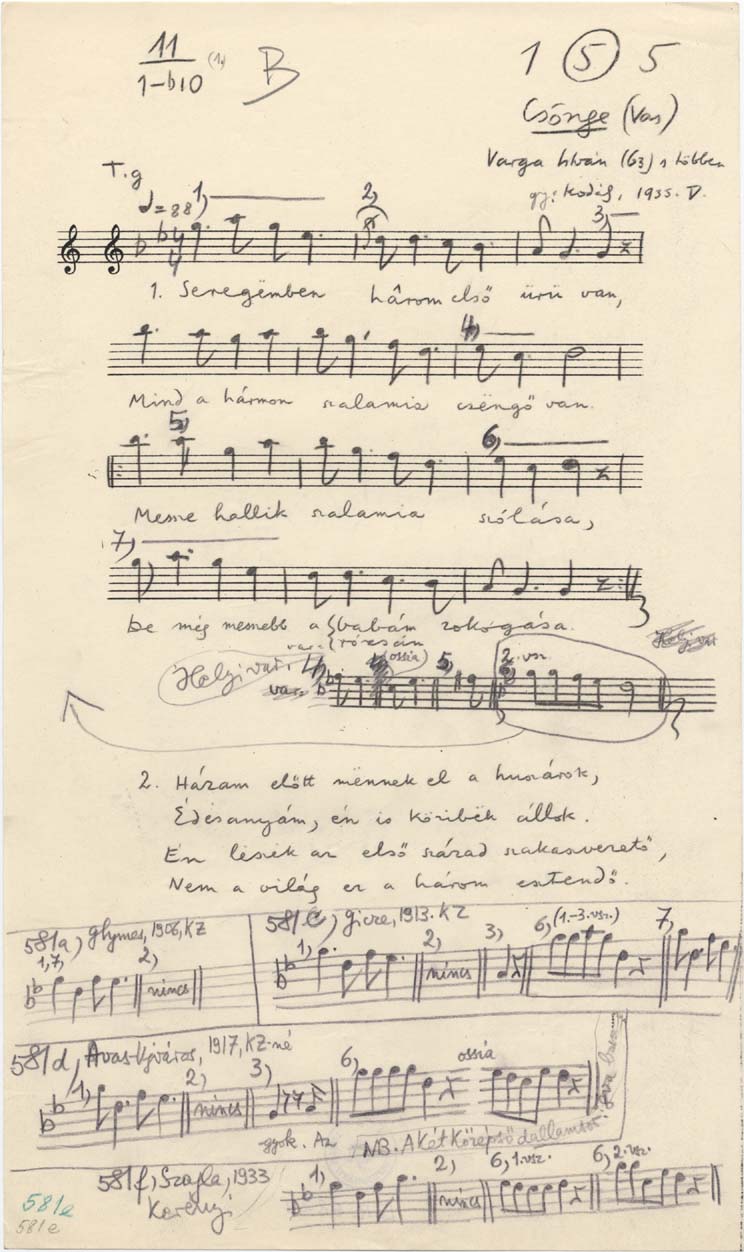 11
1-b10 (1.) B
1 5 5
Csönge (Vas)
Varga István (63) s többen
gy: Kodály, 1935. V.
T. g
♩=88 1, 2, 3,
1. Seregëmben három első ürü van,
4,
Mind a hármon szalamia csëngő van.
5, 6,
Messze hallik szalamia szólása,
7,
De még messebb a babám zokogása.
var. rózsám
Helyi var. 4, (ossia) 5, 2. vsz.
var.
2. Házam előtt mënnek el a huszárok,
Édësanyám, én is közibék állok.
Én lëszëk az első század szakaszvezető,
Nem a világ ez a három esztendő.
581a, Ghymes, 1906, KZ
1, 7, 2,
nincs
581c, Gicze, 1913. KZ
1, 2, 3, 6, (1.-3. vsz.) 7,
nincs
581d, Avas-Ujváros, 1917, KZ-né
1, 2, 3, 6, ossia
nincs
gyak. Az
NB. A két középső dallamsor:
581f, Szajla, 1933
Kerényi
1, 2, 6, 1. vsz. 6, 2. vsz.
nincs
581e
581e